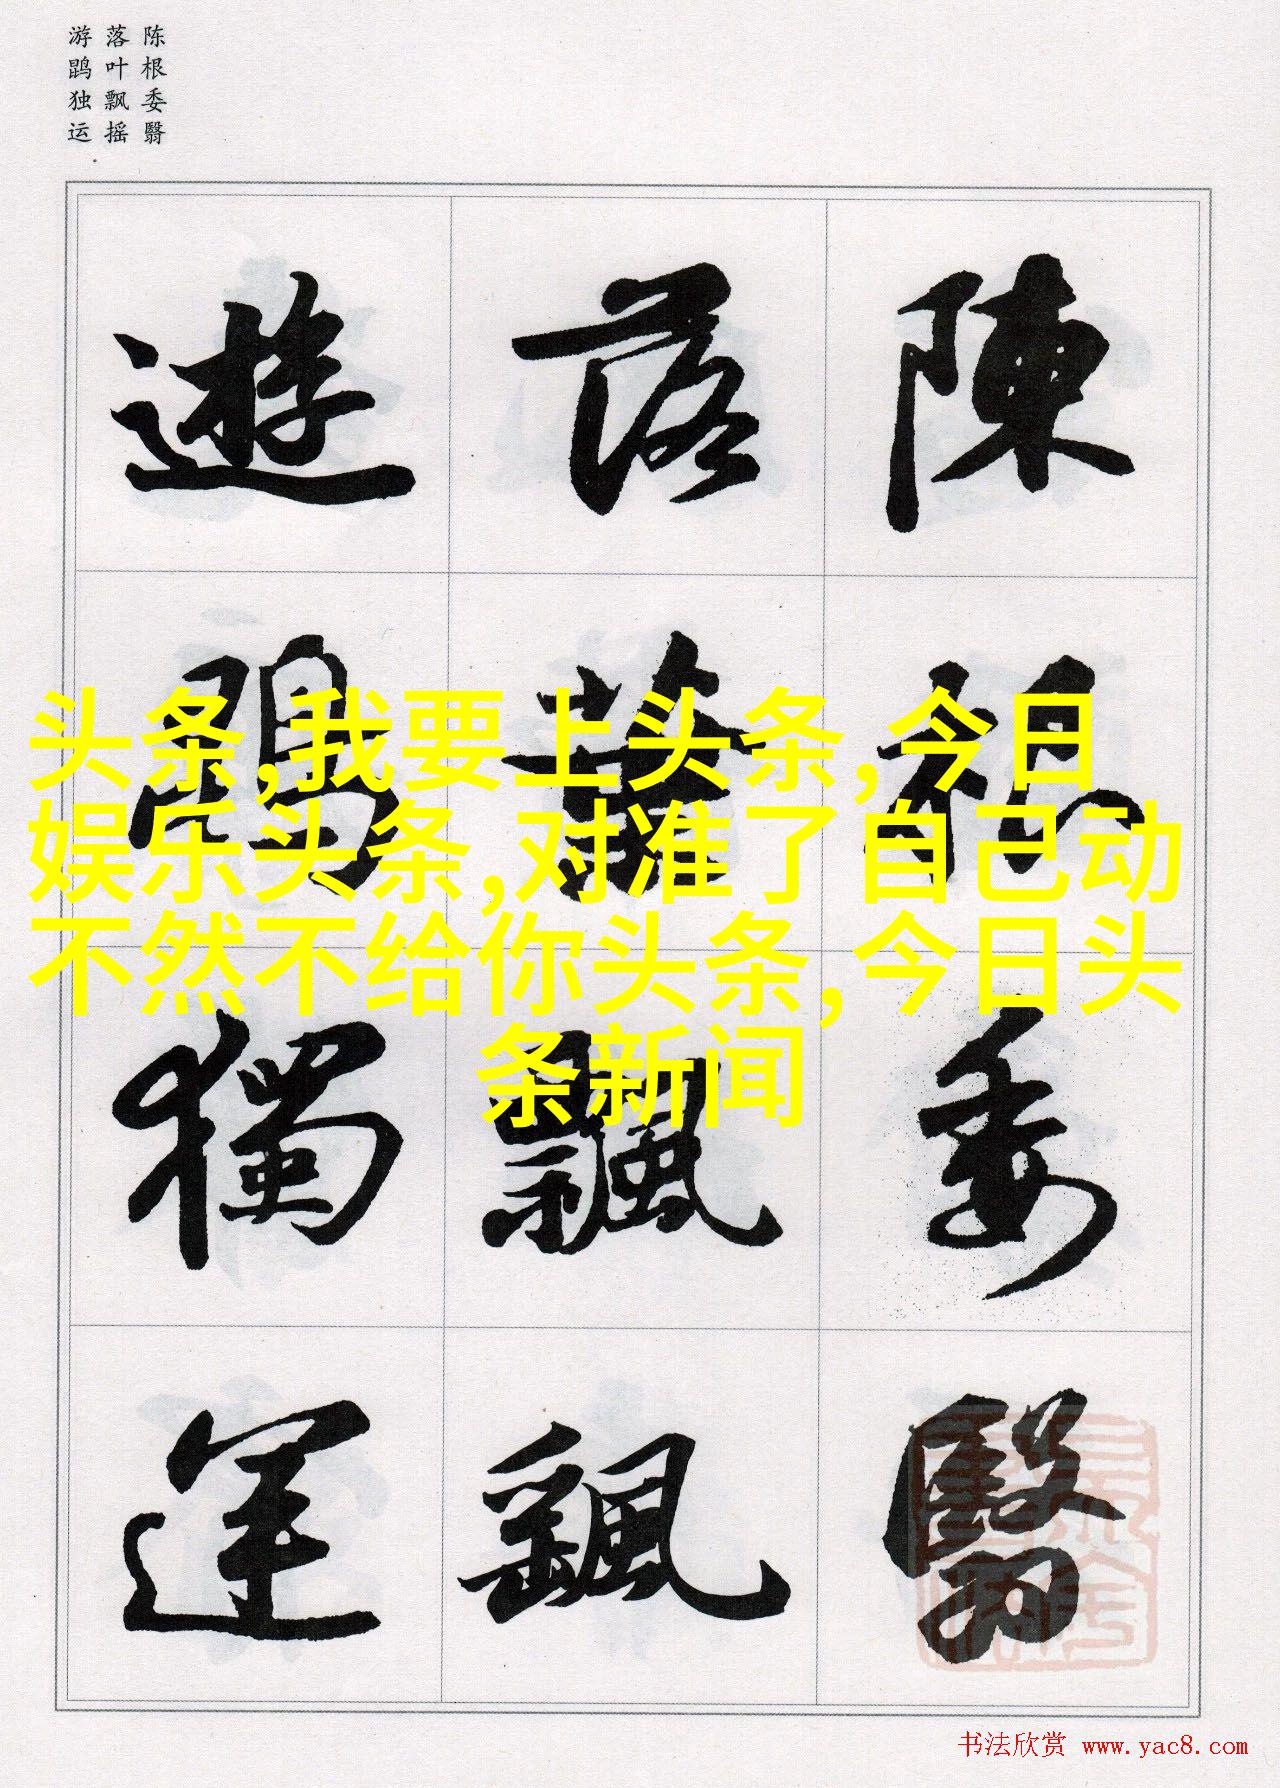 陈根委翳
落叶飘摇
游鹍独运
陳根委翳
落葉飄飖
遊鵾獨運
头条,我要上头条,今日
娱乐头条,对准了自己动
不然不给你头条,今日头
条新闻
书法欣赏 www.yac8.com